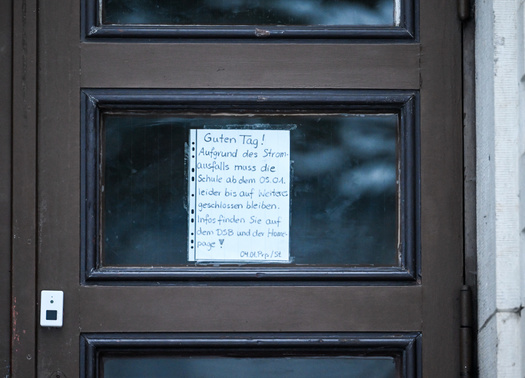 Guten Tag!
Aufgrund des Strom-
ausfalls muss die
Schule ab dem 05.01.
leider bis auf Weiteres
geschlossen bleiben.
Infos finden Sie auf
dem DSB und der Home-
page!
04.01.